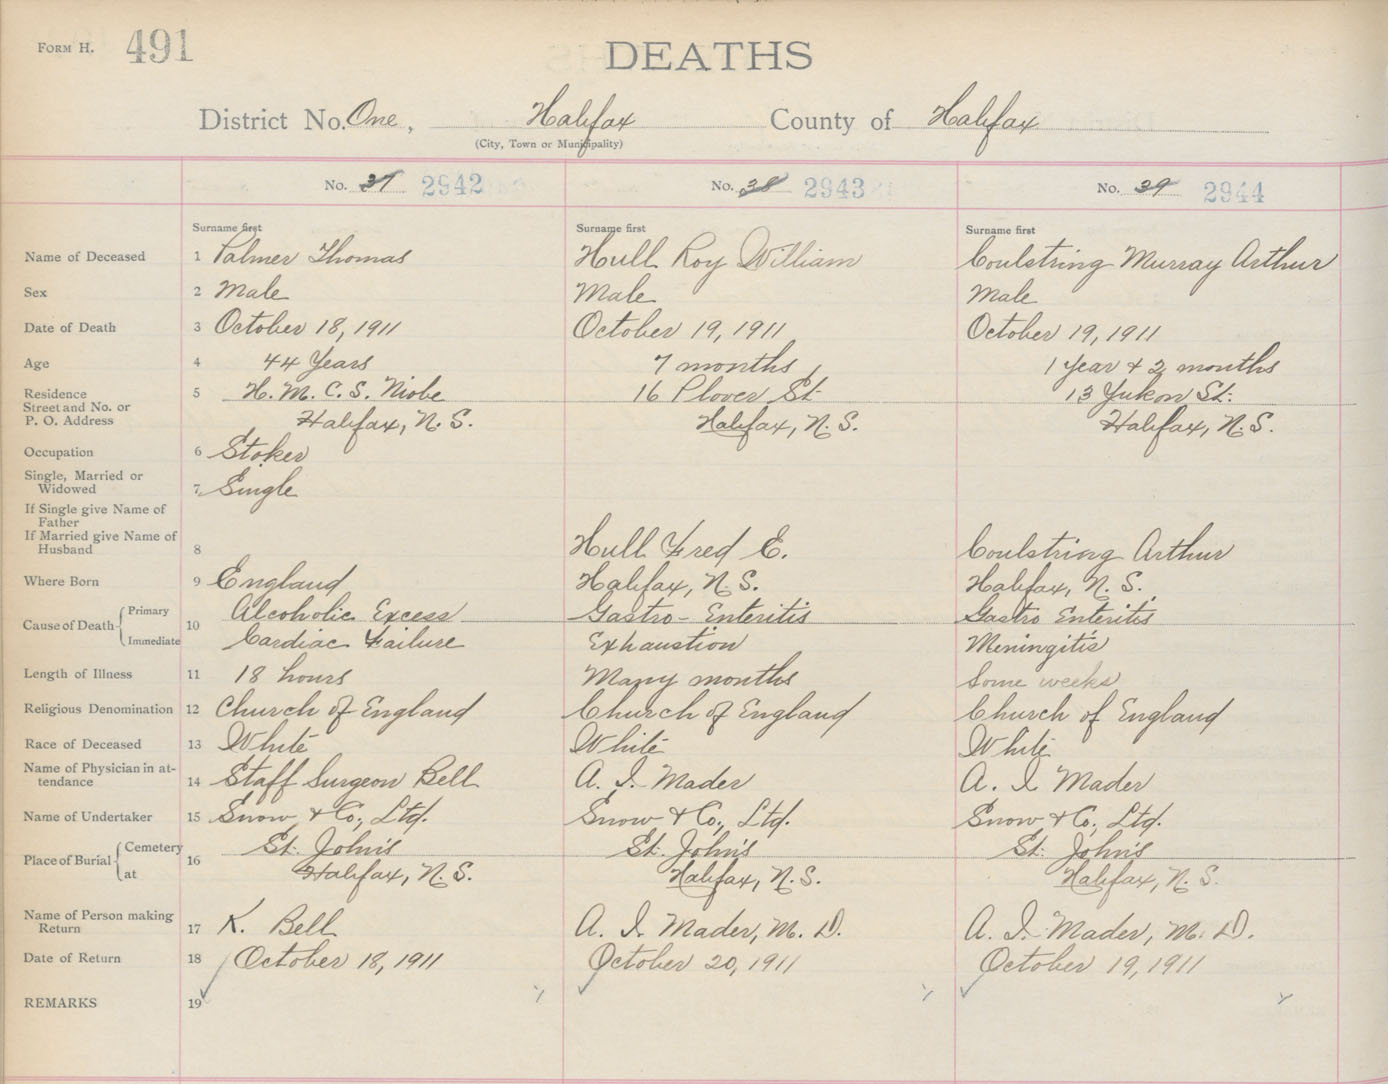 FORM H. 491
DEATHS
District No. One, Halifax County of Halifax
(City, Town or Municipality)
No. 37 2942 No. 38 2943 No. 39 2944
Surname first Surname first Surname first
Name of Deceased 1 Palmer Thomas Hull Roy William Coulstring Murray Arthur
Sex 2 Male Male Male
Date of Death 3 October 18, 1911 October 19, 1911 October 19, 1911
Age 4 44 Years 7 months 1 year + 2 months
Residence 5 H. M. C. S. Niobe 16 Plover St. 13 Yukon St.
Street and No. or
P. O. Address Halifax, N. S. Halifax, N. S. Halifax, N. S.
Occupation 6 Stoker
Single, Married or
Widowed 7 Single
If Single give Name of
Father
If Married give Name of
Husband 8 Hull Fred E. Coulstring Arthur
Where Born 9 England Halifax, N. S. Halifax, N. S.
Cause of Death 10
Primary Alcoholic Excess Gastro-Enteritis Gastro Enteritis
Immediate Cardiac Failure Exhaustion Meningitis
Length of Illness 11 18 hours Many months Some weeks
Religious Denomination 12 Church of England Church of England Church of England
Race of Deceased 13 White White White
Name of Physician in at-
tendance 14 Staff Surgeon Bell A. I. Mader A. I. Mader
Name of Undertaker 15 Snow + Co., Ltd. Snow + Co., Ltd. Snow + Co., Ltd.
Place of Burial 16
Cemetery St. John's St. John's St. John's
at Halifax, N. S. Halifax, N. S. Halifax, N. S.
Name of Person making
Return 17 K. Bell A. I. Mader, M. D. A. I. Mader, M. D.
Date of Return 18 October 18, 1911 October 20, 1911 October 19, 1911
REMARKS 19